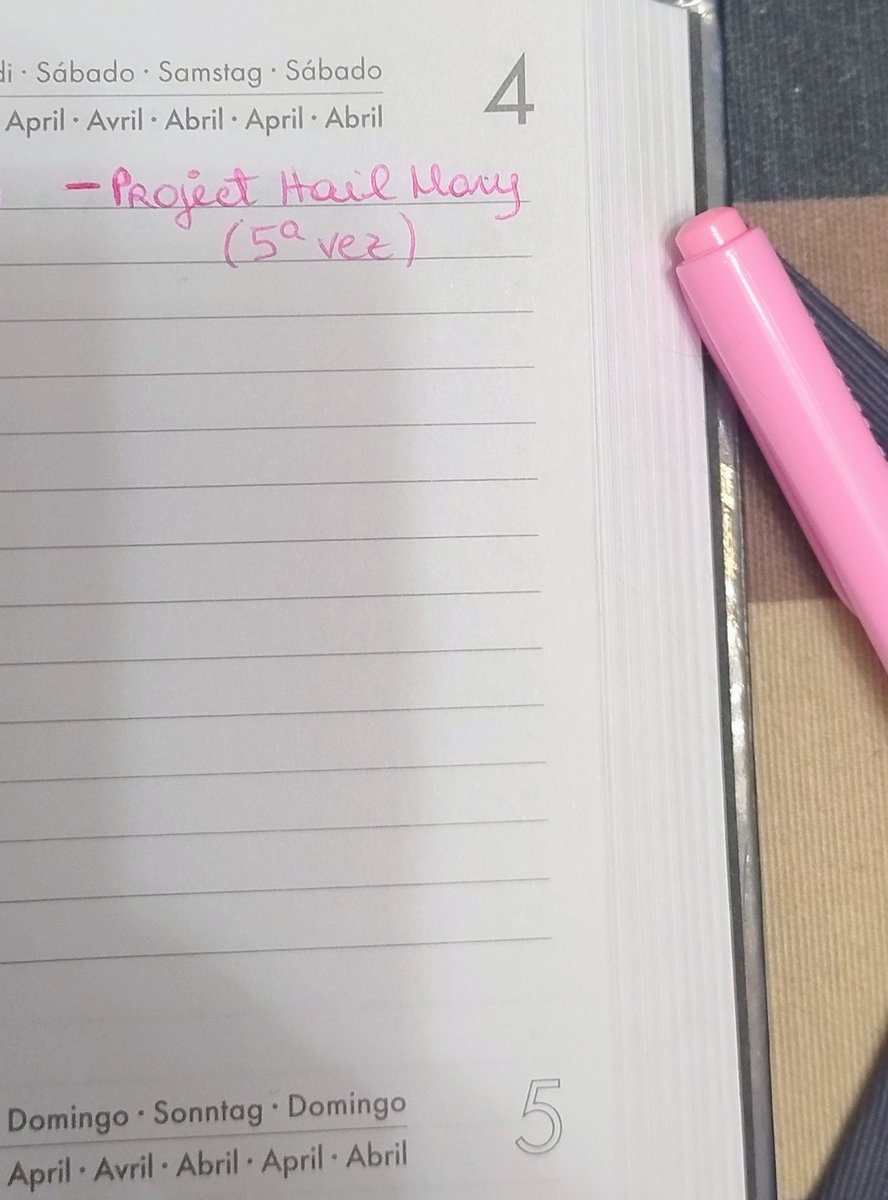 di · Sábado · Samstag · Sábado
4
April · Avril · Abril · April · Abril
- Project Hail Mary
(5ª vez)
Domingo · Sonntag · Domingo
5
April · Avril · Abril · April · Abril